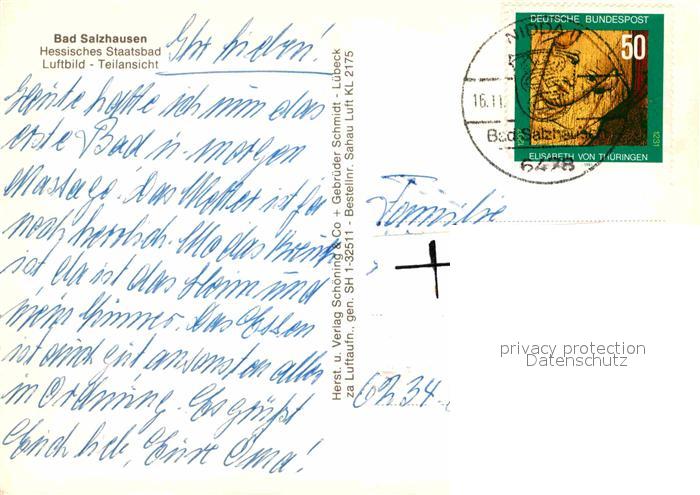 Bad Salzhausen
Hessisches Staatsbad
Luftbild - Teilansicht
Ihr Lieben!
Heute hatte ich nun das
erste Bad u. morgen
Massage. Das Wetter ist ja
noch herrlich. Wo das Kreuz
ist, da ist das Heim und
mein Zimmer. Das Essen
ist auch gut ansonsten alles
in Ordnung. Es grüßt
Euch lieb, Eure Oma!
Herst. u. Verlag Schöning & Co + Gebrüder Schmidt - Lübeck
za Luftaufn., gen. SH 1-32511 - Bestellnr.: Sahau Luft KL 2175
DEUTSCHE BUNDESPOST
50
1231
ELISABETH VON THÜRINGEN
NIDDA 1
16.11.
Bad Salzhausen
6478
Familie
6234
privacy protection
Datenschutz